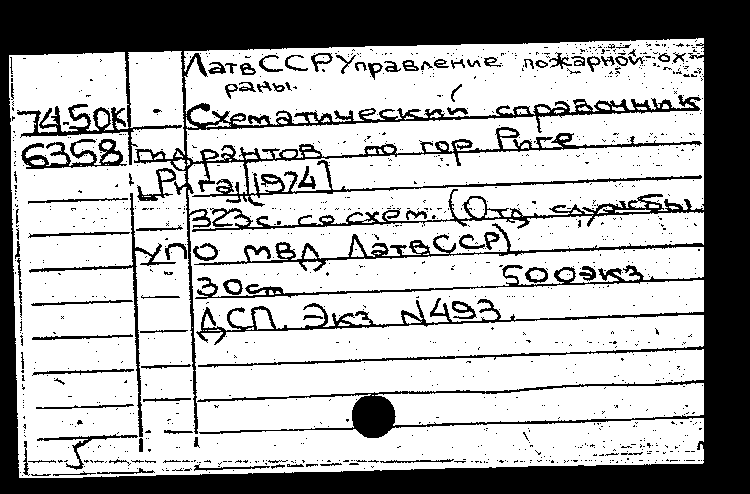 ЛатвССР. Управление пожарной ох-
раны.
74-50К Схематический справочник
6358 гидрантов по гор. Риге
[Рига], [1974].
323с. со схем. (Отд. службы
УПО МВД ЛатвССР)
30см 500экз.
ДСП. Экз N493.
5